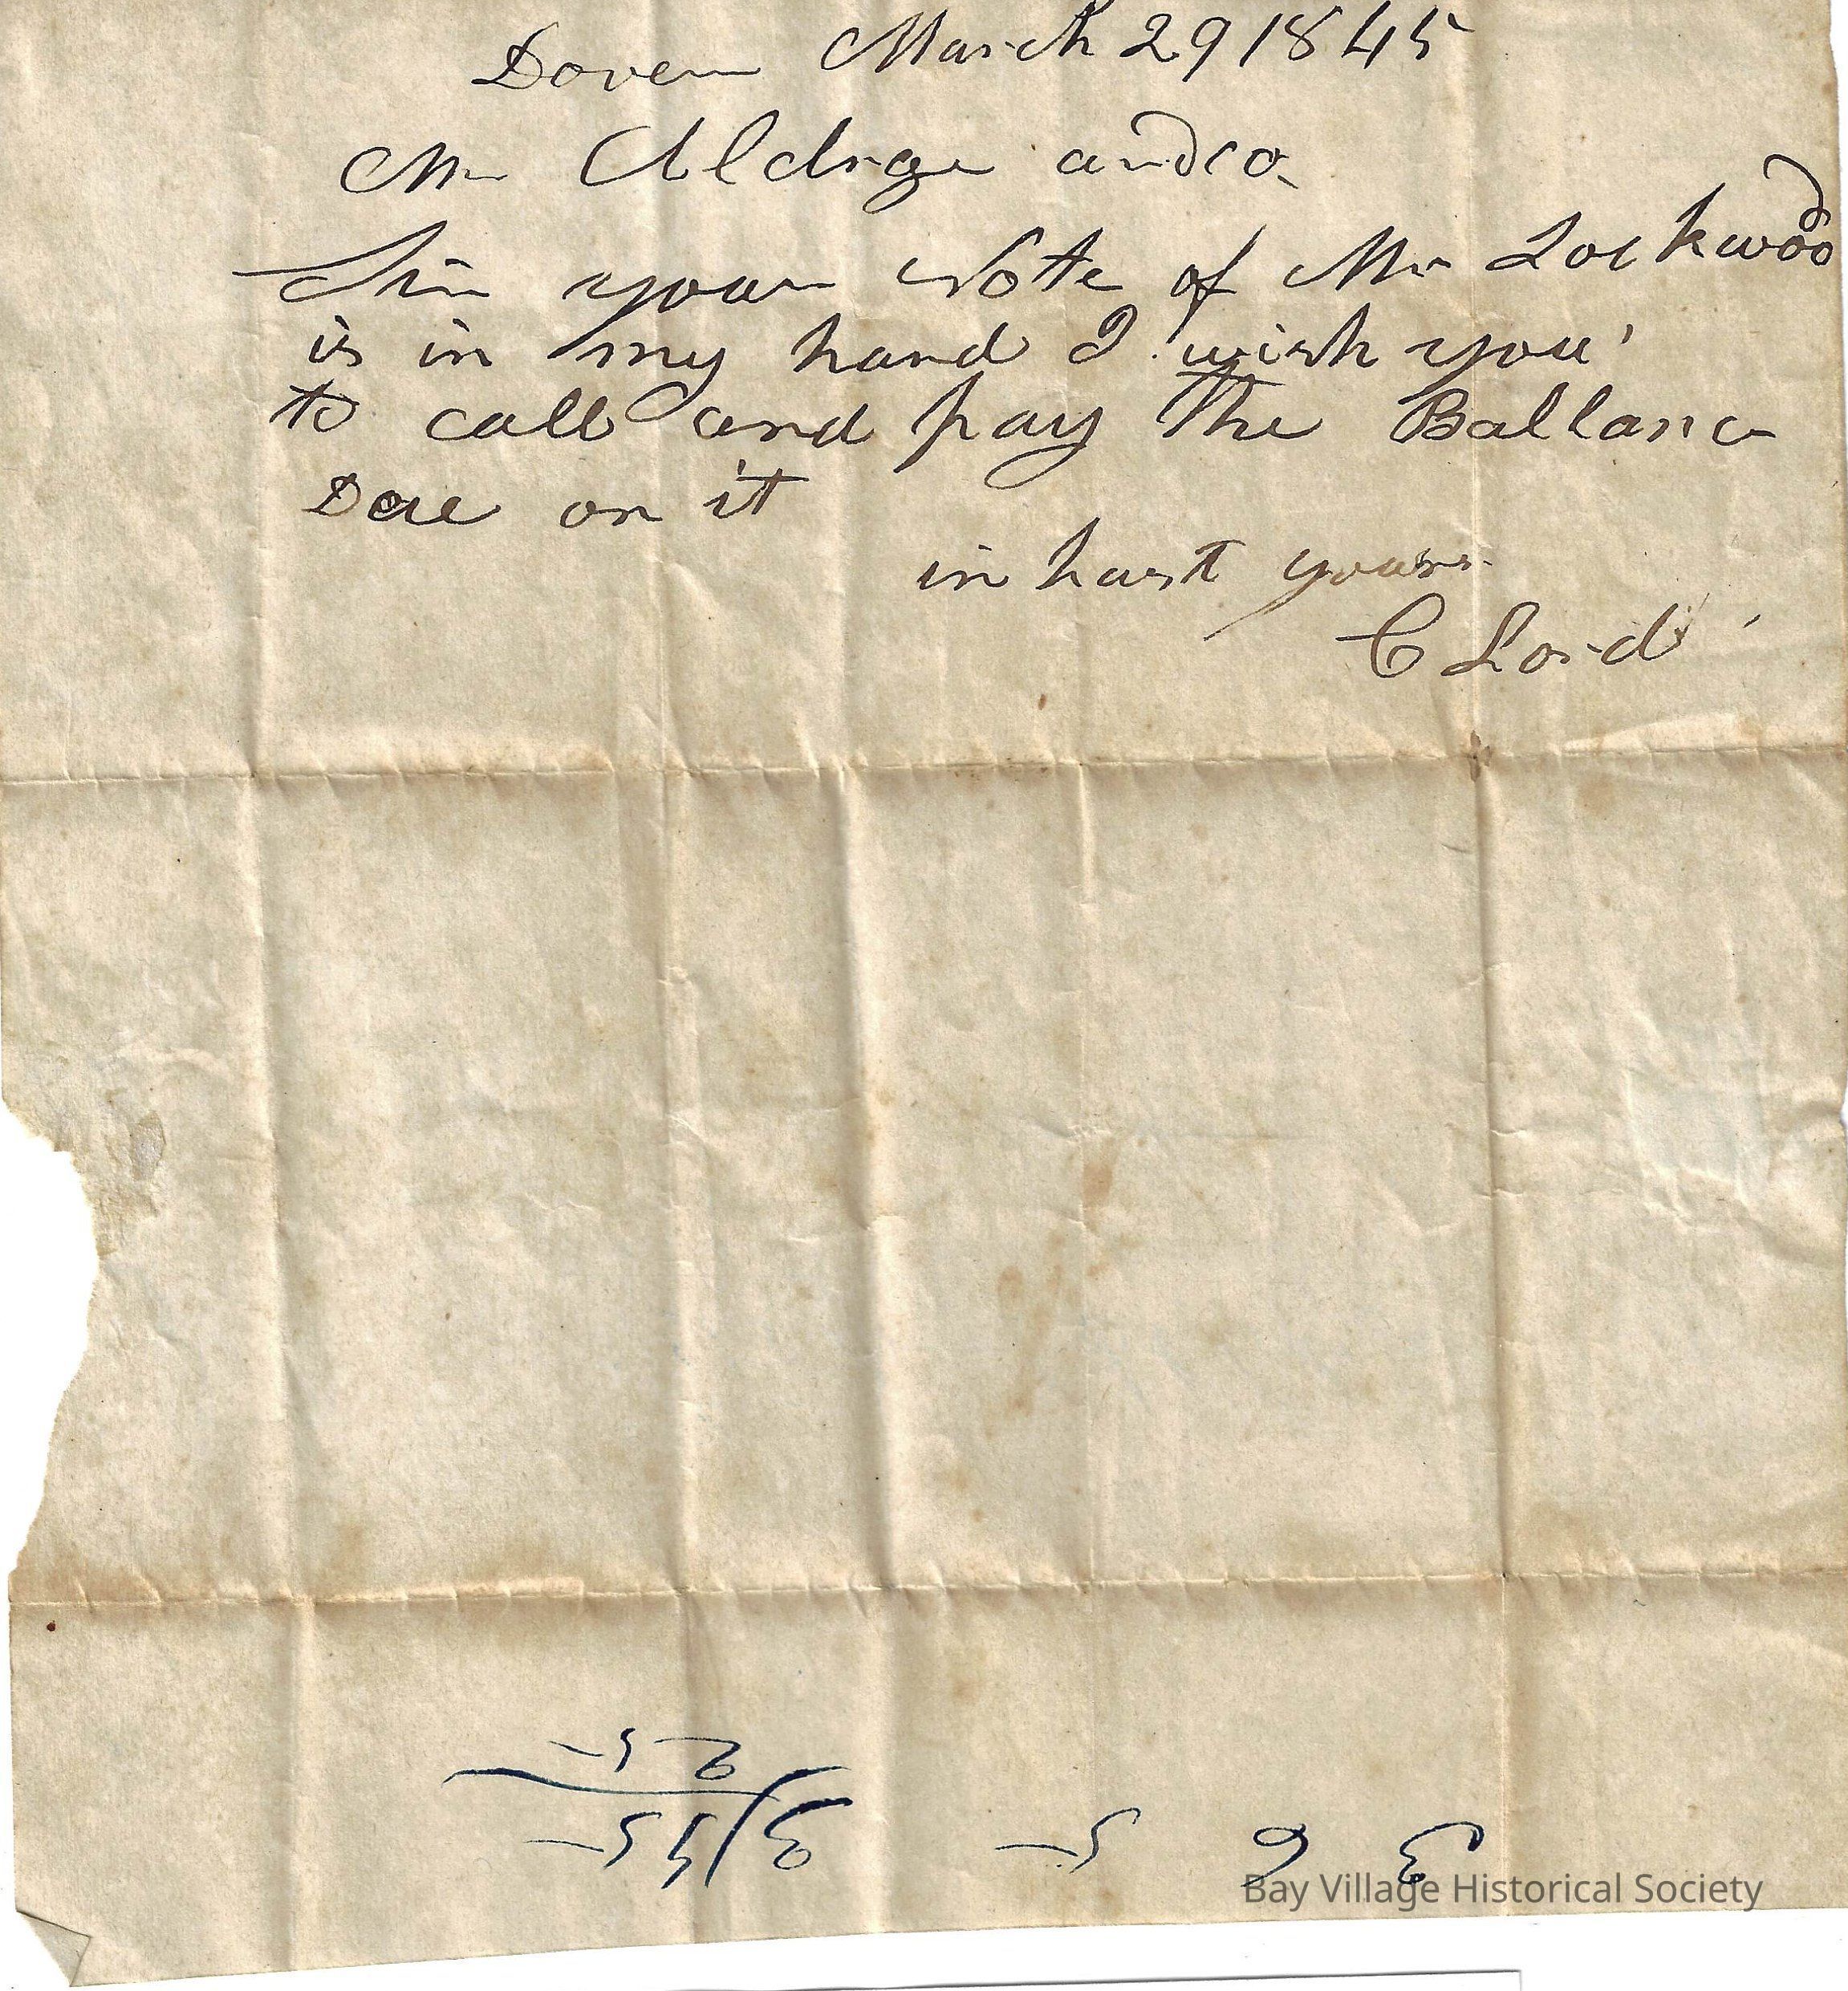 Dover March 29 1845
Mr Aldrige and co.
Sir your Note of Mr Lockwood
is in my hand I wish you
to call and pay the Ballanc
Due on it
in hast yours
C Lord
3 6 5
Bay Village Historical Society